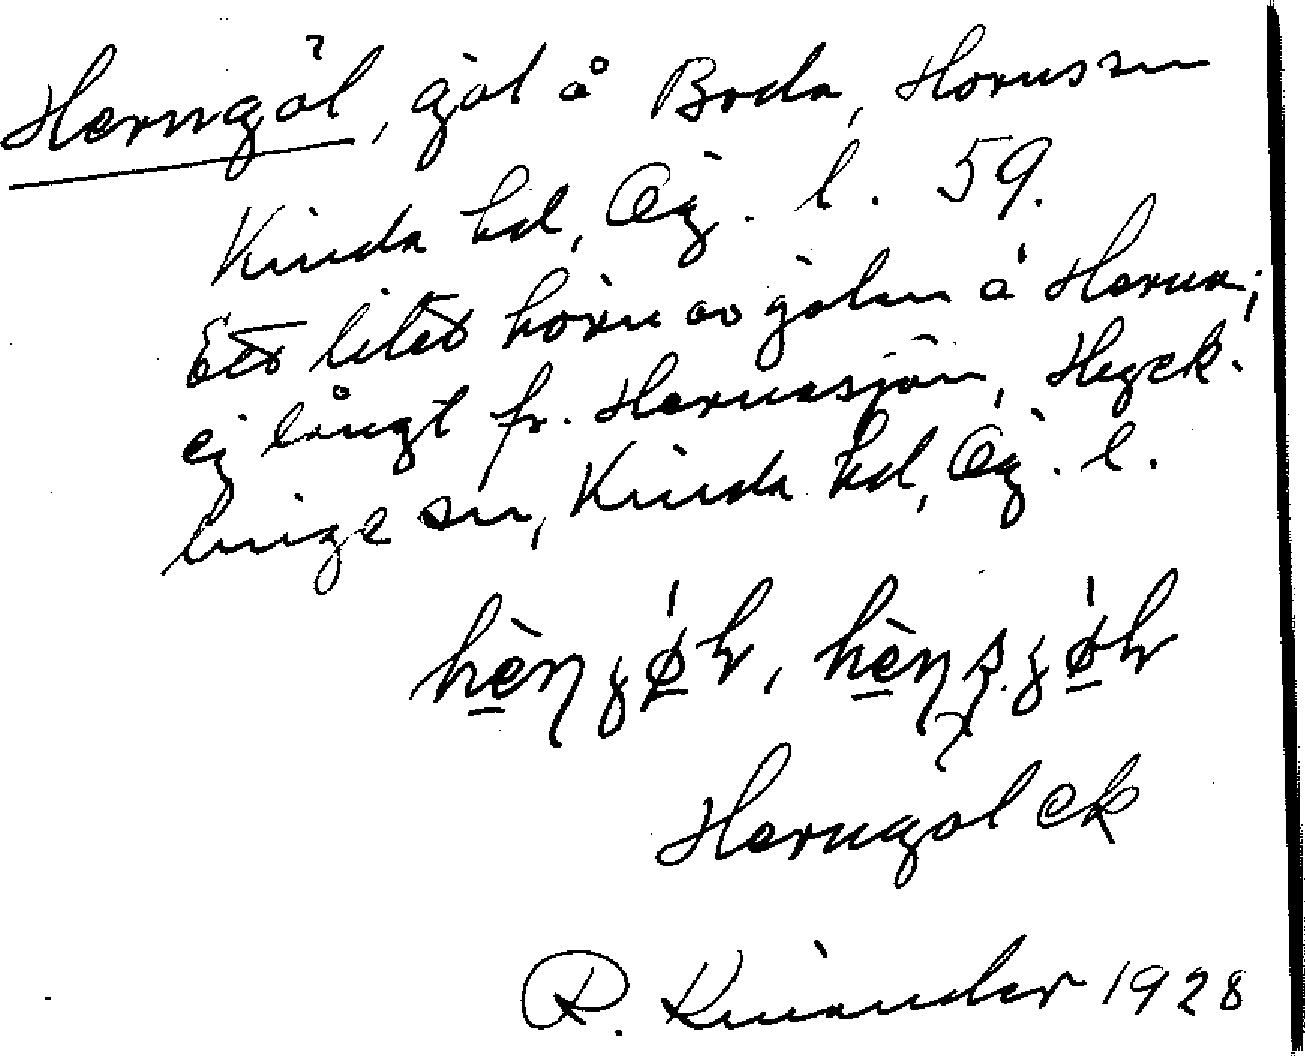 Herngöl, göl å Boda, Horns sn
Kinda hd, Ög. l. 59.
Ett litet hörn av gölen å Herna;
ej långt fr. Hernasjön, Hyck-
linge sn, Kinda hd, Ög. l.
Herngöl ek
R. Kinander 1928